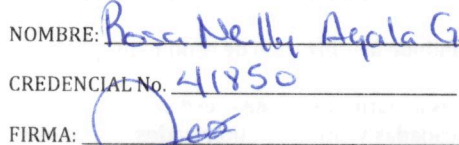 NOMBRE: Rosa Nelly Ayala G
CREDENCIAL No. 41850
FIRMA: